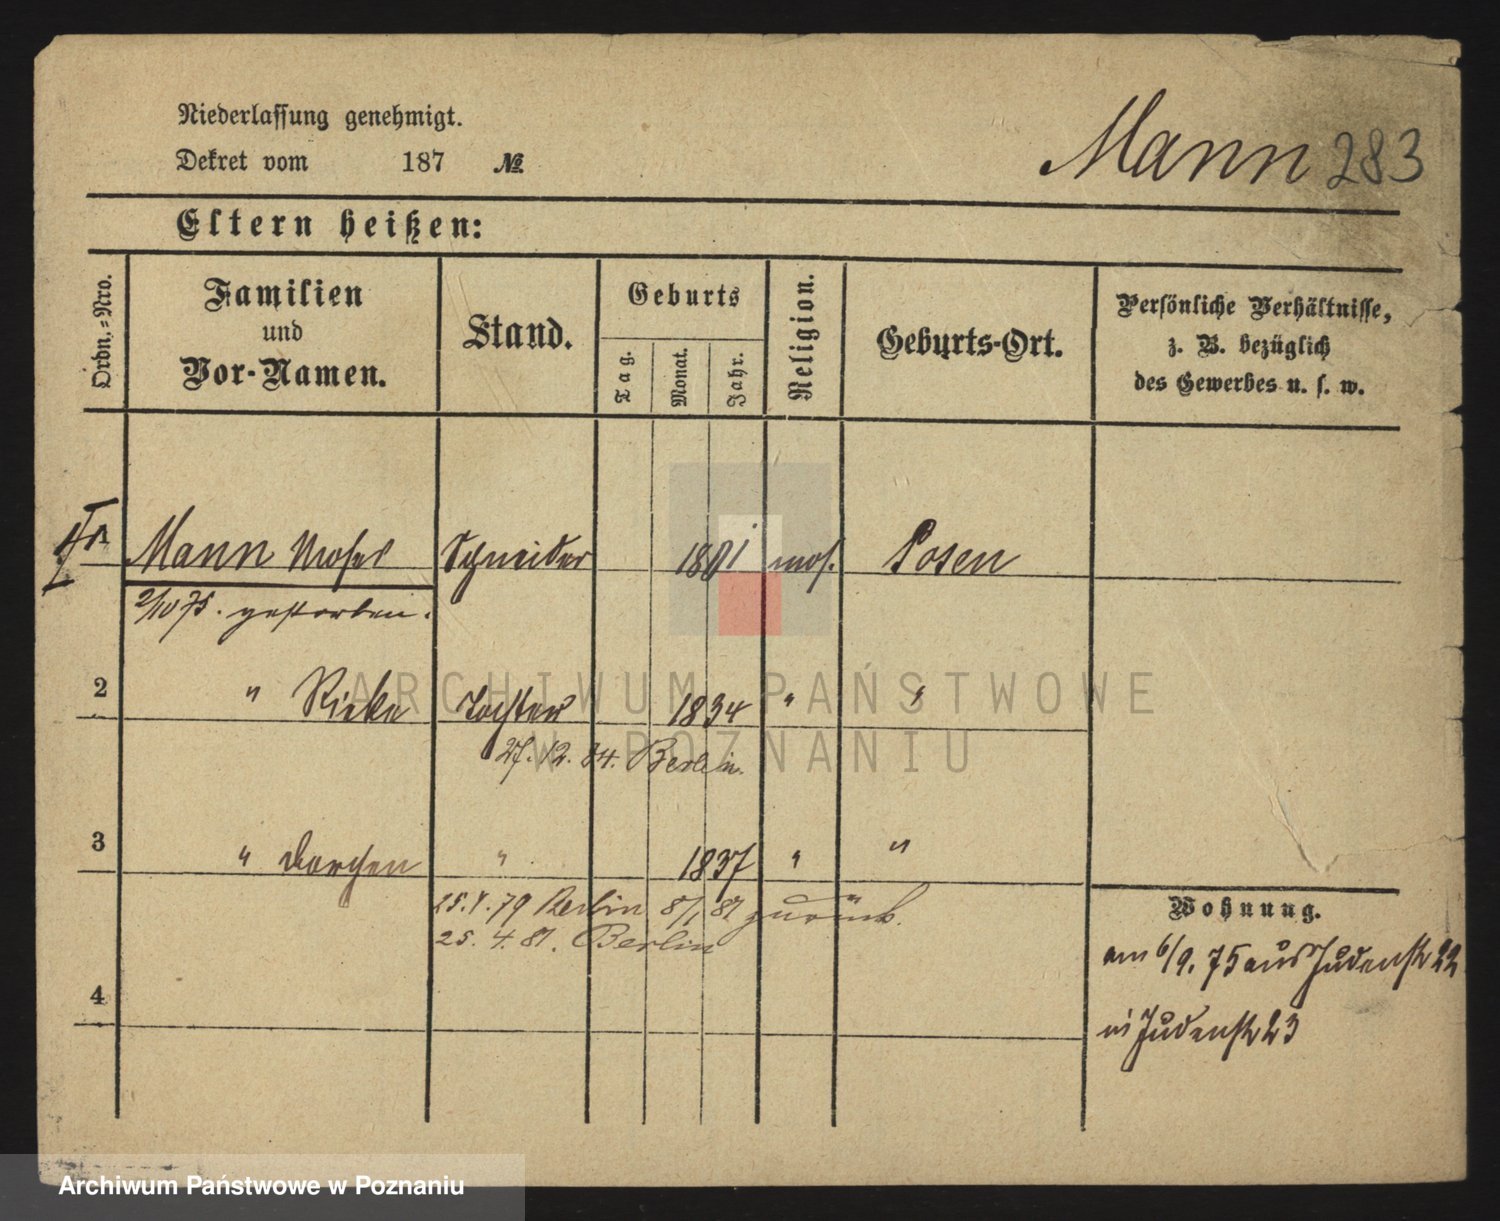 Niederlassung genehmigt.
Dekret vom 187 №
Mann 283
Eltern heißen:
Ordn.-Nro.
Familien
und
Vor-Namen.
Stand.
Geburts
Tag.
Monat.
Jahr.
Religion.
Geburts-Ort.
Persönliche Verhältnisse,
z. B. bezüglich
des Gewerbes u. s. w.
Mann Moses Schneider 1801 mos. Posen
2/10 75. gestorben.
2 " Rieke Tochter 1834 " "
27. 12. 84. Berlin.
3 " Dorchen " 1837 " "
25. 1. 79 Berlin 8/1 81 zurück.
25. 4. 81. Berlin
4
Wohnung.
am 6/9. 75 aus Judenstr 22
in Judenstr 23
ARCHIWUM PAŃSTWOWE
W POZNANIU
Archiwum Państwowe w Poznaniu